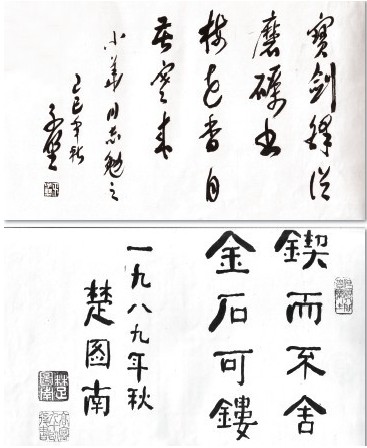 寶劍鋒從
磨礪出
梅花香自
苦寒來
小華同志勉之
己巳年秋
鍥而不舍
金石可鏤
一九八九年秋
楚图南